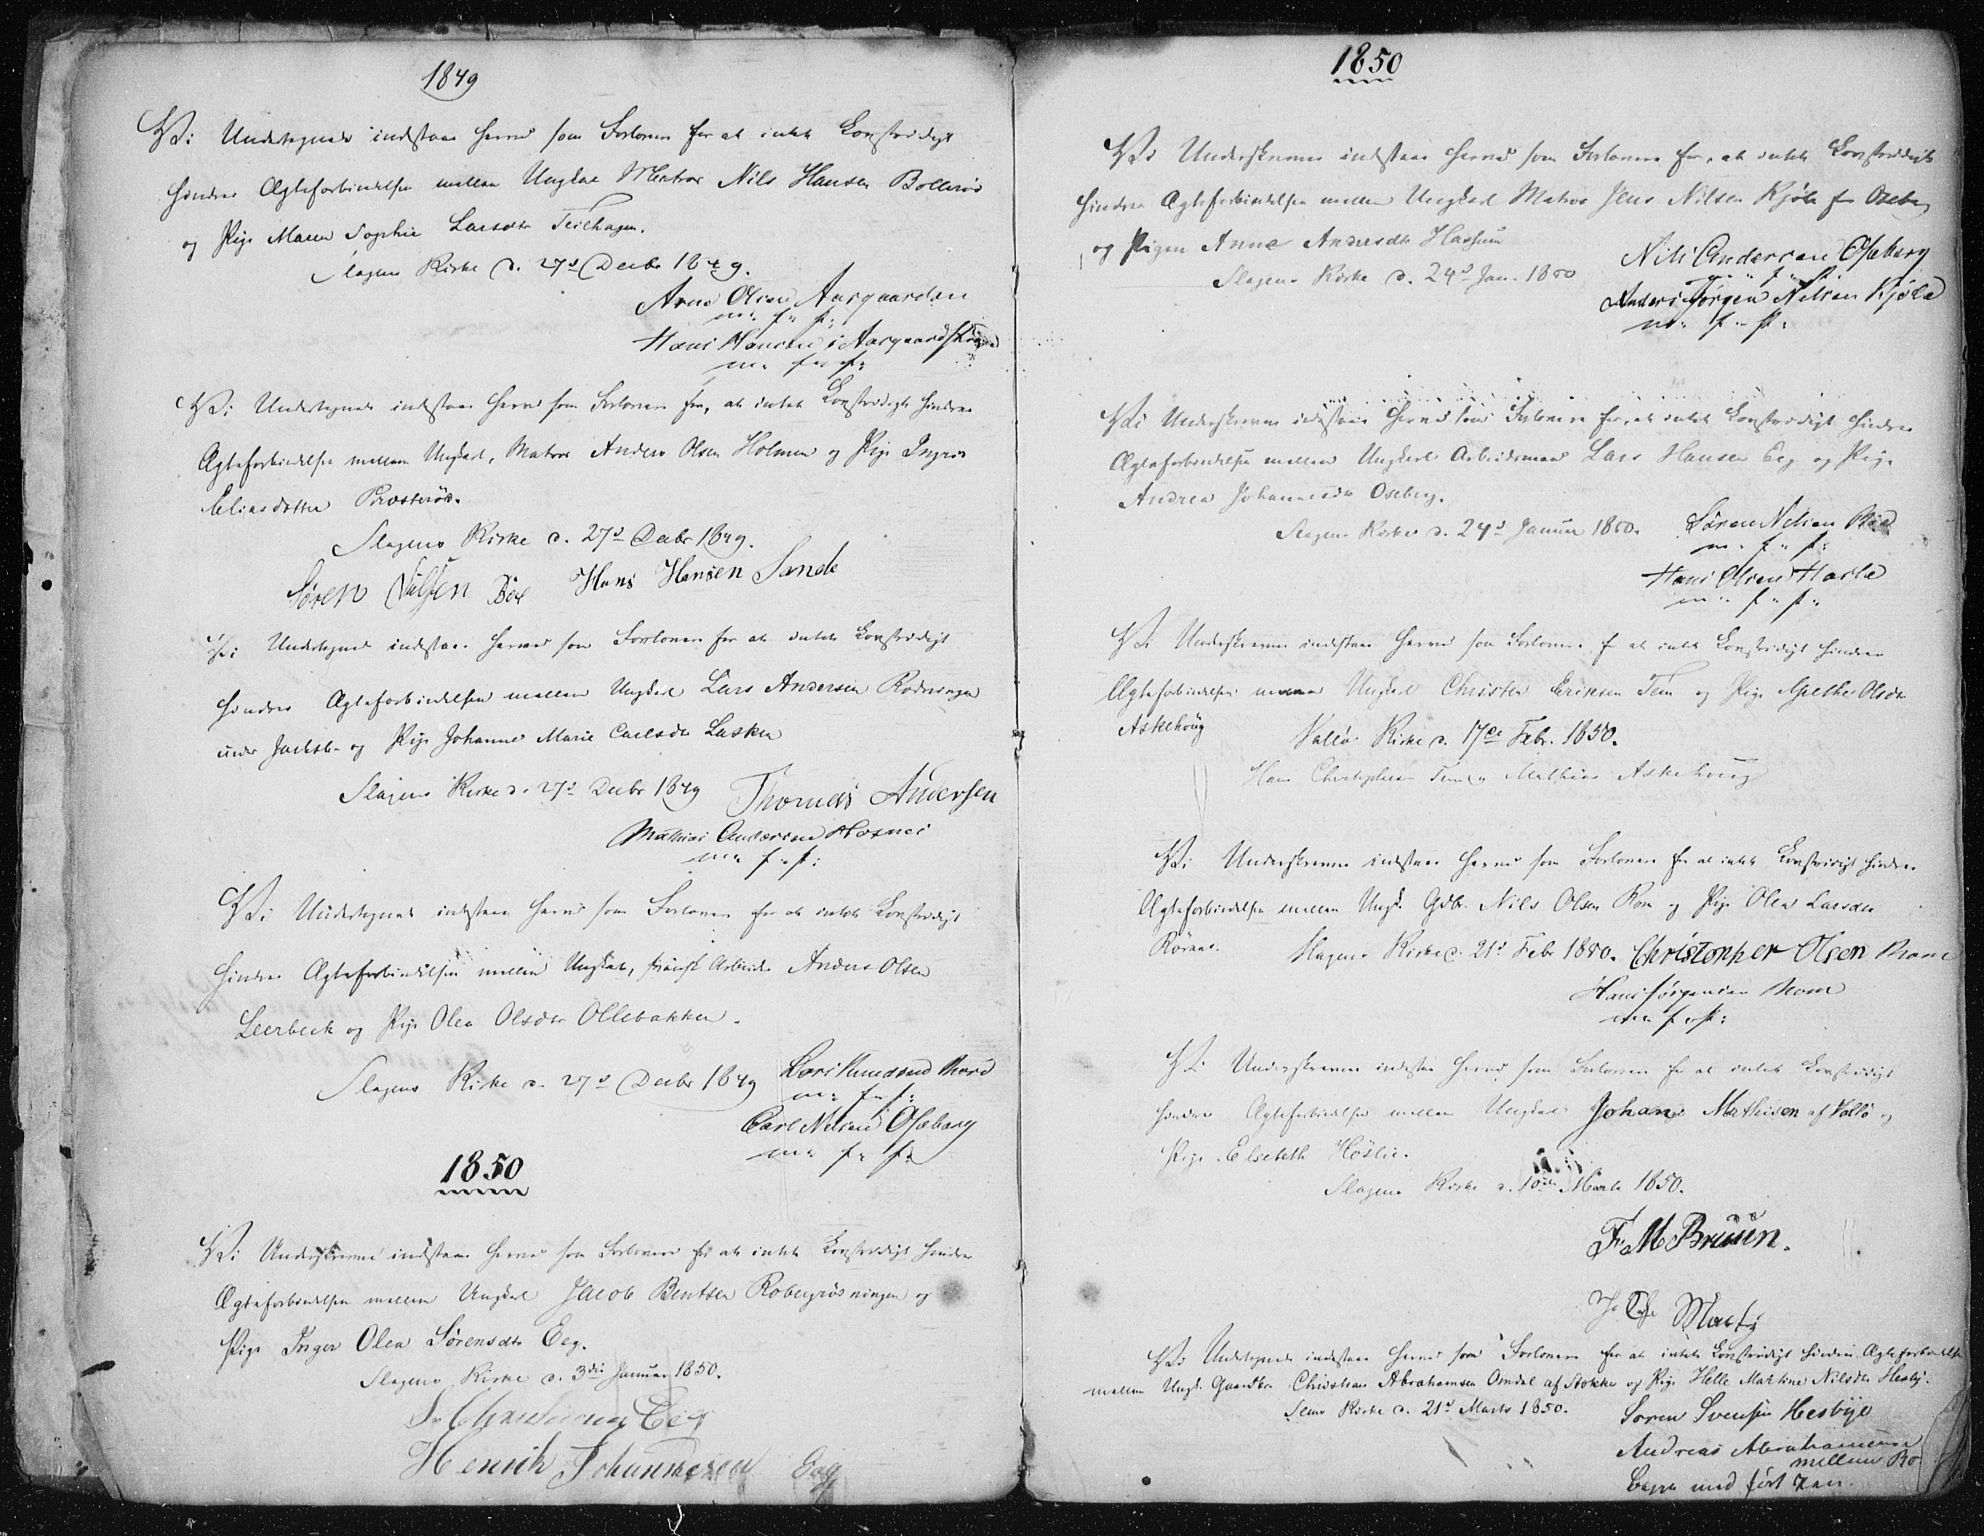 1849
Vi Undertegnede indestaae herved som Forlovere for at intet Lovstridigt
hindrer Ægteforbindelsen mellem Ungkarl Matros Nils Hansen Bollerød
og Pige Maren Sophie Larsdtr Teilhagen.
Slagens Kirke d. 27d Decbr 1849.
Arne Olsen Aasgaarden
m: f: p:
Hans Hansen i Aasgaard
m: f: p:
Vi Undertegnede indestaae herved som Forlovere for, at intet Lovstridigt hindrer
Ægteforbindelsen mellem Ungkarl, Matros Anders Olsen Holmen og Pige Ingrid
Eliasdatter Presterød.
Slagens Kirke d. 27d Decbr 1849.
Søren Nilsen Bøe Hans Hansen Sande
Vi Undertegnede indestaae herved som Forlovere for at intet Lovstridigt
hindrer Ægteforbindelsen mellem Ungkarl Lars Andersen Rødningen
under Jarlsb. og Pige Johanne Marie Carlsdtr Lasken
Slagens Kirke d. 27d Decbr 1849 Thomas Andersen
Mathias Andersen
m: f: p:
Vi Undertegnede indestaae herved som Forlovere for at intet Lovstridigt
hindrer Ægteforbindelsen mellem Ungkarl, Arbeids Anders Olsen
Leerbeck og Pige Olea Olsdtr Ollebakken.
Slagens Kirke d. 27d Decbr 1849 Lars Knudsen
m: f: p:
Carl Nelsen Oseberg
m: f: p:
1850
Vi Underskrevne indestaae herved som Forlovere for at intet Lovstridigt hindrer
Ægteforbindelsen mellem Ungkarl Jacob Bentsen Robergrødningen og
Pige Inger Olea Sørensdtr Eeg.
Slagens Kirke d. 3die Januar 1850.
Eeg
Henrik Johannesen Eeg
1850
Vi Underskrevne indestaae herved som Forlovere for, at intet Lovstridigt
hindrer Ægteforbindelsen mellem Ungkarl Matros Jens Nilsen Kjøle fra Oseberg
og Pigen Anne Andersdtr Hassum
Slagens Kirke d. 24d Jan. 1850
Nils Andersen Oseberg
m: f: p:
Anders Jørgen Nelsen Kjøle
m: f: p:
Vi Underskrevne indestaae herved som Forlovere for, at intet Lovstridigt hindrer
Ægteforbindelsen mellem Ungkarl Arbeidsmand Lars Hansen Eeg og Pige
Andrea Johannesdtr Oseberg.
Slagens Kirke d. 24d Januar 1850.
Søren Nelsen Bøe
m: f: p:
Hans Olsen Hasle
m: f: p:
Vi Underskrevne indestaae herved som Forlovere for at intet Lovstridigt hindrer
Ægteforbindelsen mellem Ungkarl Christen Eriksen Tem og Pige Grethe Olsdtr
Askehoug
Vallø Kirke d. 17de Febr. 1850.
Hans Christophersen Mathias Askehoug
Vi Underskrevne indestaae herved som Forlovere for at intet Lovstridigt hindrer
Ægteforbindelsen mellem Ungk. Gdbr. Nils Olsen Rom og Pige Olea Larsdtr
Røraas.
Slagens Kirke d. 21d Febr 1850. Christonher Olsen Rom
Hans Jørgensen Rom
m: f: p:
Vi Underskrevne indestaae herved som Forlovere for at intet Lovstridigt
hindrer Ægteforbindelsen mellem Ungkarl Johan Mathisen af Vallø og
Pige Elsebeth Høslie.
Slagens Kirke d. 10de Marts 1850.
Fr. M Bruun.
Vi Undertegnede indestaae herved som Forlovere for at intet Lovstridigt hindrer Ægteforbindelsen
mellem Ungk. Gaardbr. Christian Abrahamsen Omdal af Stokke og Pige Helle Mathine Nilsdtr Hesby.
Sems Kirke d. 21d Marts 1850.
Soren Svensen Hesbye
Andreas Abrahamsen
mellem Ro
med ført Pen.